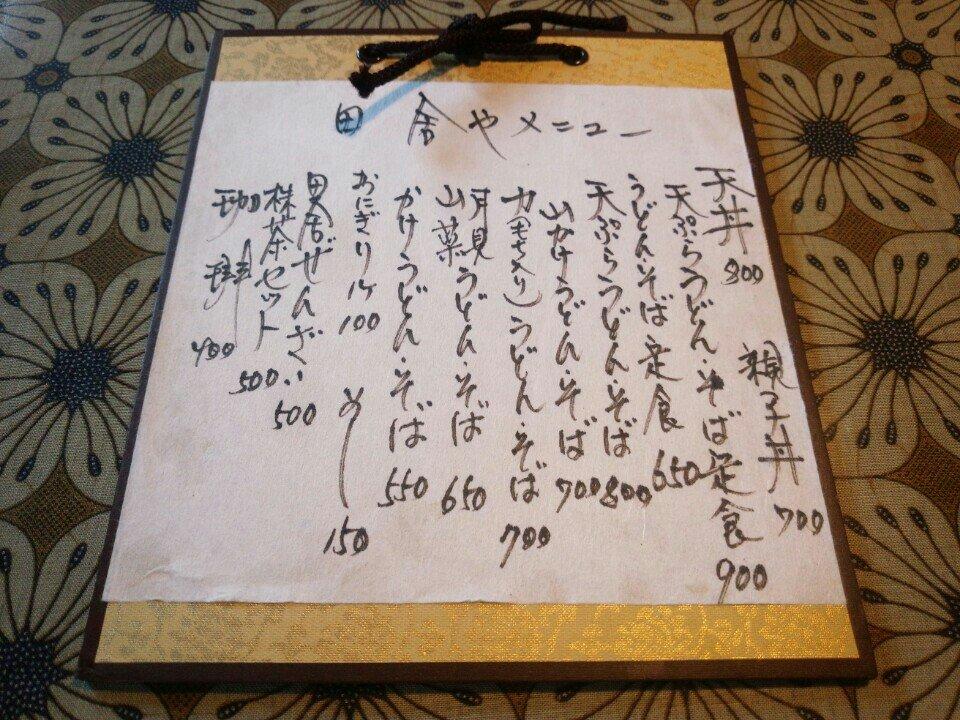 田舎やメニュー
天丼 800 親子丼 700
天ぷらうどん・そば定食 900
うどん・そば定食 650
天ぷらうどん・そば 800
山かけうどん・そば 700
力(もち入り)うどん・そば 700
月見うどん・そば 650
山菜
かけうどん・そば 550
おにぎり 1ケ 100 めし 150
田舎ぜんざい 500
抹茶セット 500
珈琲 400